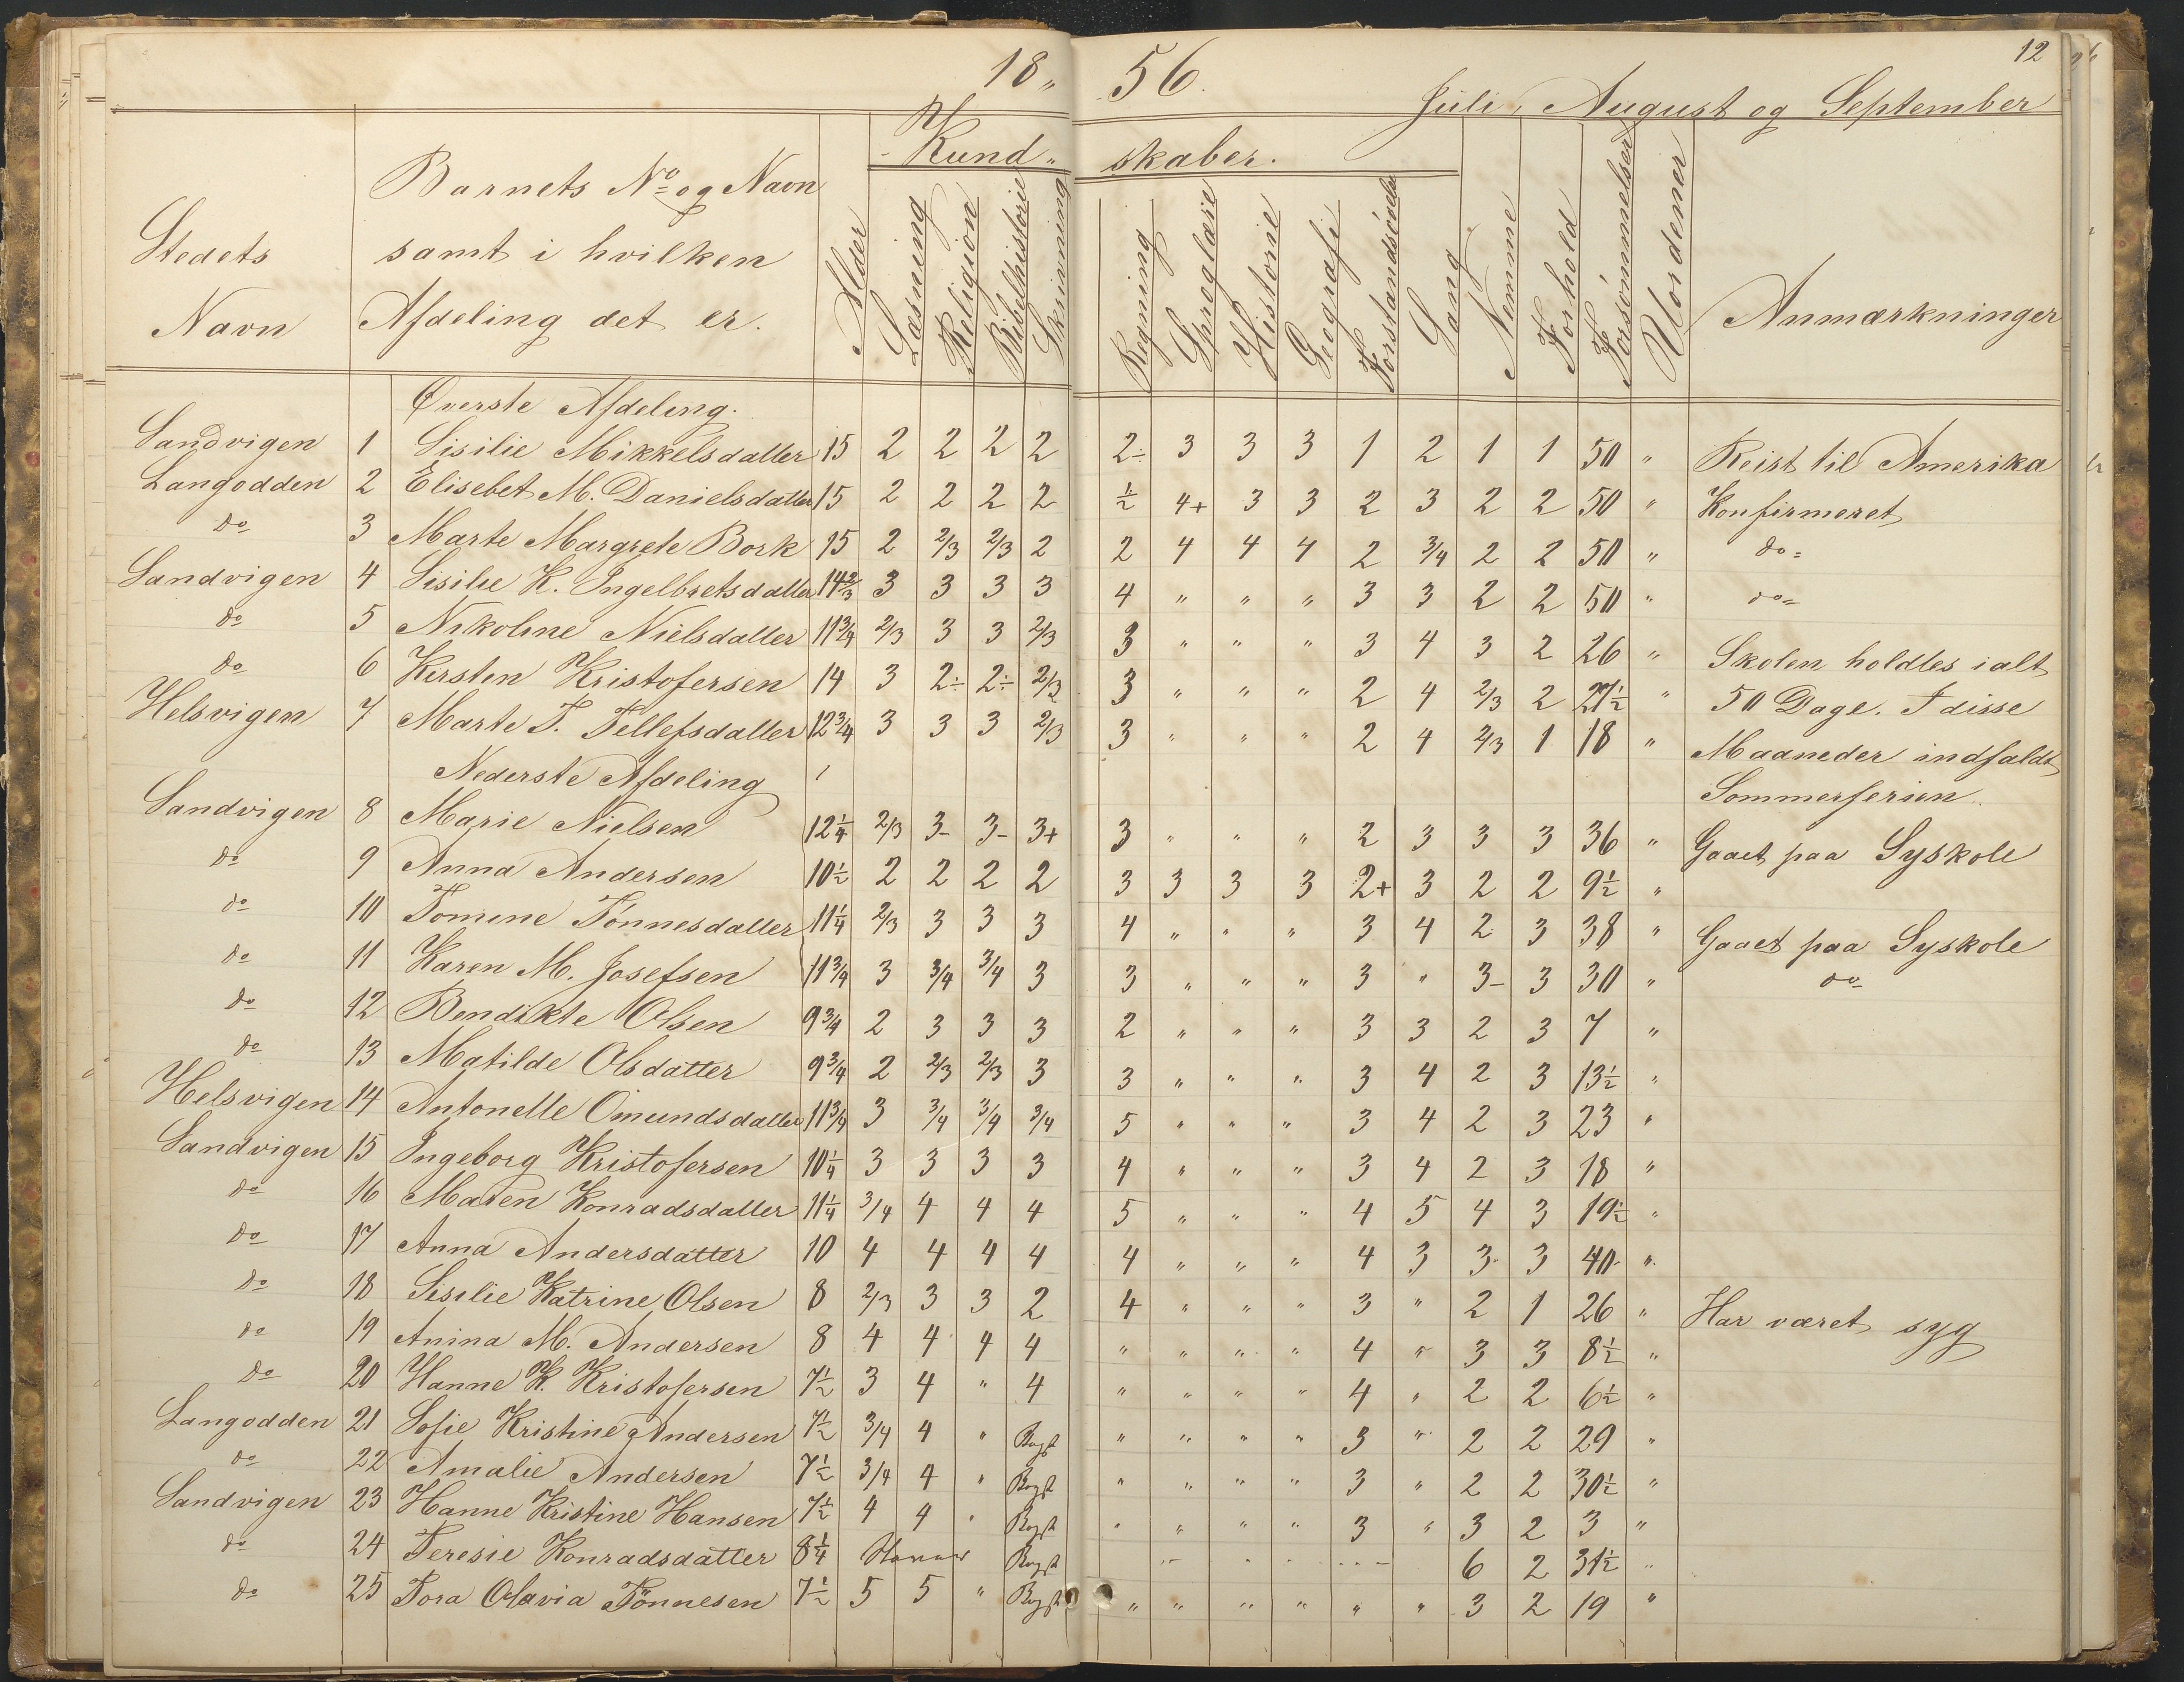 18„ 56.
12
Juli, August og September
Kund„ skaber.
Stedets Navn
Barnets No og Navn
samt i hvilken
Afdeling det er.
Alder Læsning Religion Bibelhistorie Skrivning Regning Sproglære Historie Geografi Forstandsøvelse Sang Nemme Forhold Forsømmelser Uordener Anmærkninger
Øverste Afdeling.
Sandvigen 1 Sisilie Mikkelsdatter 15 2 2 2 2 2÷ 3 3 3 1 2 1 1 50 „ Reist til Amerika
Langodden 2 Elisebet M. Danielsdatter 15 2 2 2 2 ½ 4+ 3 3 2 3 2 2 50 „ Konfirmeret
do 3 Marte Margrete Bork 15 2 2/3 2/3 2 2 4 4 4 2 3/4 2 2 50 „ do
Sandvigen 4 Sisilie K. Ingelbretsdatter 14 2/3 3 3 3 3 4 „ „ „ 3 3 2 2 50 „ do
do 5 Nikoline Nielsdatter 11 3/4 2/3 3 3 2/3 3 „ „ „ 3 4 3 2 26 „ Skolen holdtes ialt
do 6 Kirsten Kristofersen 14 3 2÷ 2÷ 2/3 3 „ „ „ 2 4 2/3 2 27½ „ 50 Dage. I disse
Helsvigen 7 Marte T. Tellefsdatter 12 3/4 3 3 3 2/3 3 „ „ „ 2 4 2/3 1 18 „ Maaneder indfaldt
Nederste Afdeling Sommerferien.
Sandvigen 8 Marie Nielsen 12 1/4 2/3 3- 3- 3+ 3 „ „ „ 2 3 3 3 36 „ Gaaet paa Syskole
do 9 Anna Andersen 10½ 2 2 2 2 3 3 3 3 2+ 3 2 2 9½ „
do 10 Tomine Tönnesdatter 11 1/4 2/3 3 3 3 4 „ „ „ 3 4 2 3 38 „ Gaaet paa Syskole
do 11 Karen M. Josefsen 11 3/4 3 3/4 3/4 3 3 „ „ „ 3 „ 3- 3 30 „ do
do 12 Bendikte Olsen 9 3/4 2 3 3 3 2 „ „ „ 3 3 2 3 7 „
do 13 Matilde Olsdatter 9 3/4 2 2/3 2/3 3 3 „ „ „ 3 4 2 3 13½ „
Helsvigen 14 Antonette Omundsdatter 11 3/4 3 3/4 3/4 3/4 5 „ „ „ 3 4 2 3 23 „
Sandvigen 15 Ingeborg Kristofersen 10 1/4 3 3 3 3 4 „ „ „ 3 4 2 3 18 „
do 16 Maren Konradsdatter 11 1/4 3/4 4 4 4 5 „ „ „ 4 5 4 3 19½ „
do 17 Anna Andersdatter 10 4 4 4 4 4 „ „ „ 4 3 3 3 40 „
do 18 Sisilie Katrine Olsen 8 2/3 3 3 2 4 „ „ „ 3 „ 2 1 26 „ Har været syg
do 19 Anina M. Andersen 8 4 4 4 4 „ „ „ „ 4 „ 3 3 8½ „
do 20 Hanne K. Kristofersen 7½ 3 4 „ 4 „ „ „ „ 4 „ 2 2 6½ „
Langodden 21 Sofie Kristine Andersen 7½ 3/4 4 „ Bogst „ „ „ „ 3 „ 2 2 29 „
do 22 Amalie Andersen 7½ 3/4 4 „ Bogst „ „ „ „ 3 „ 2 2 30½ „
Sandvigen 23 Hanne Kristine Hansen 7½ 4 4 „ Bogst „ „ „ „ 3 „ 3 2 3 „
do 24 Teresie Konradsdatter 8 1/4 Bogst 6 2 31½ „
do 25 Tora Olavia Tönnesen 7½ 5 5 „ Bogst „ „ „ „ „ „ 3 2 19 „